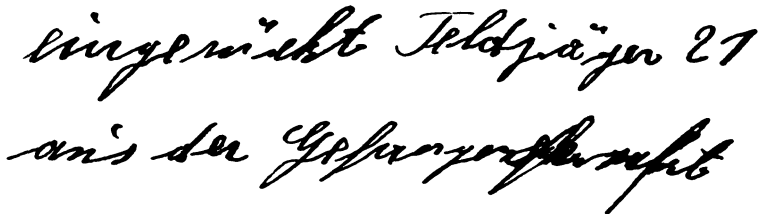 eingerückt Feldjäger 21
aus der Gefangenschaft